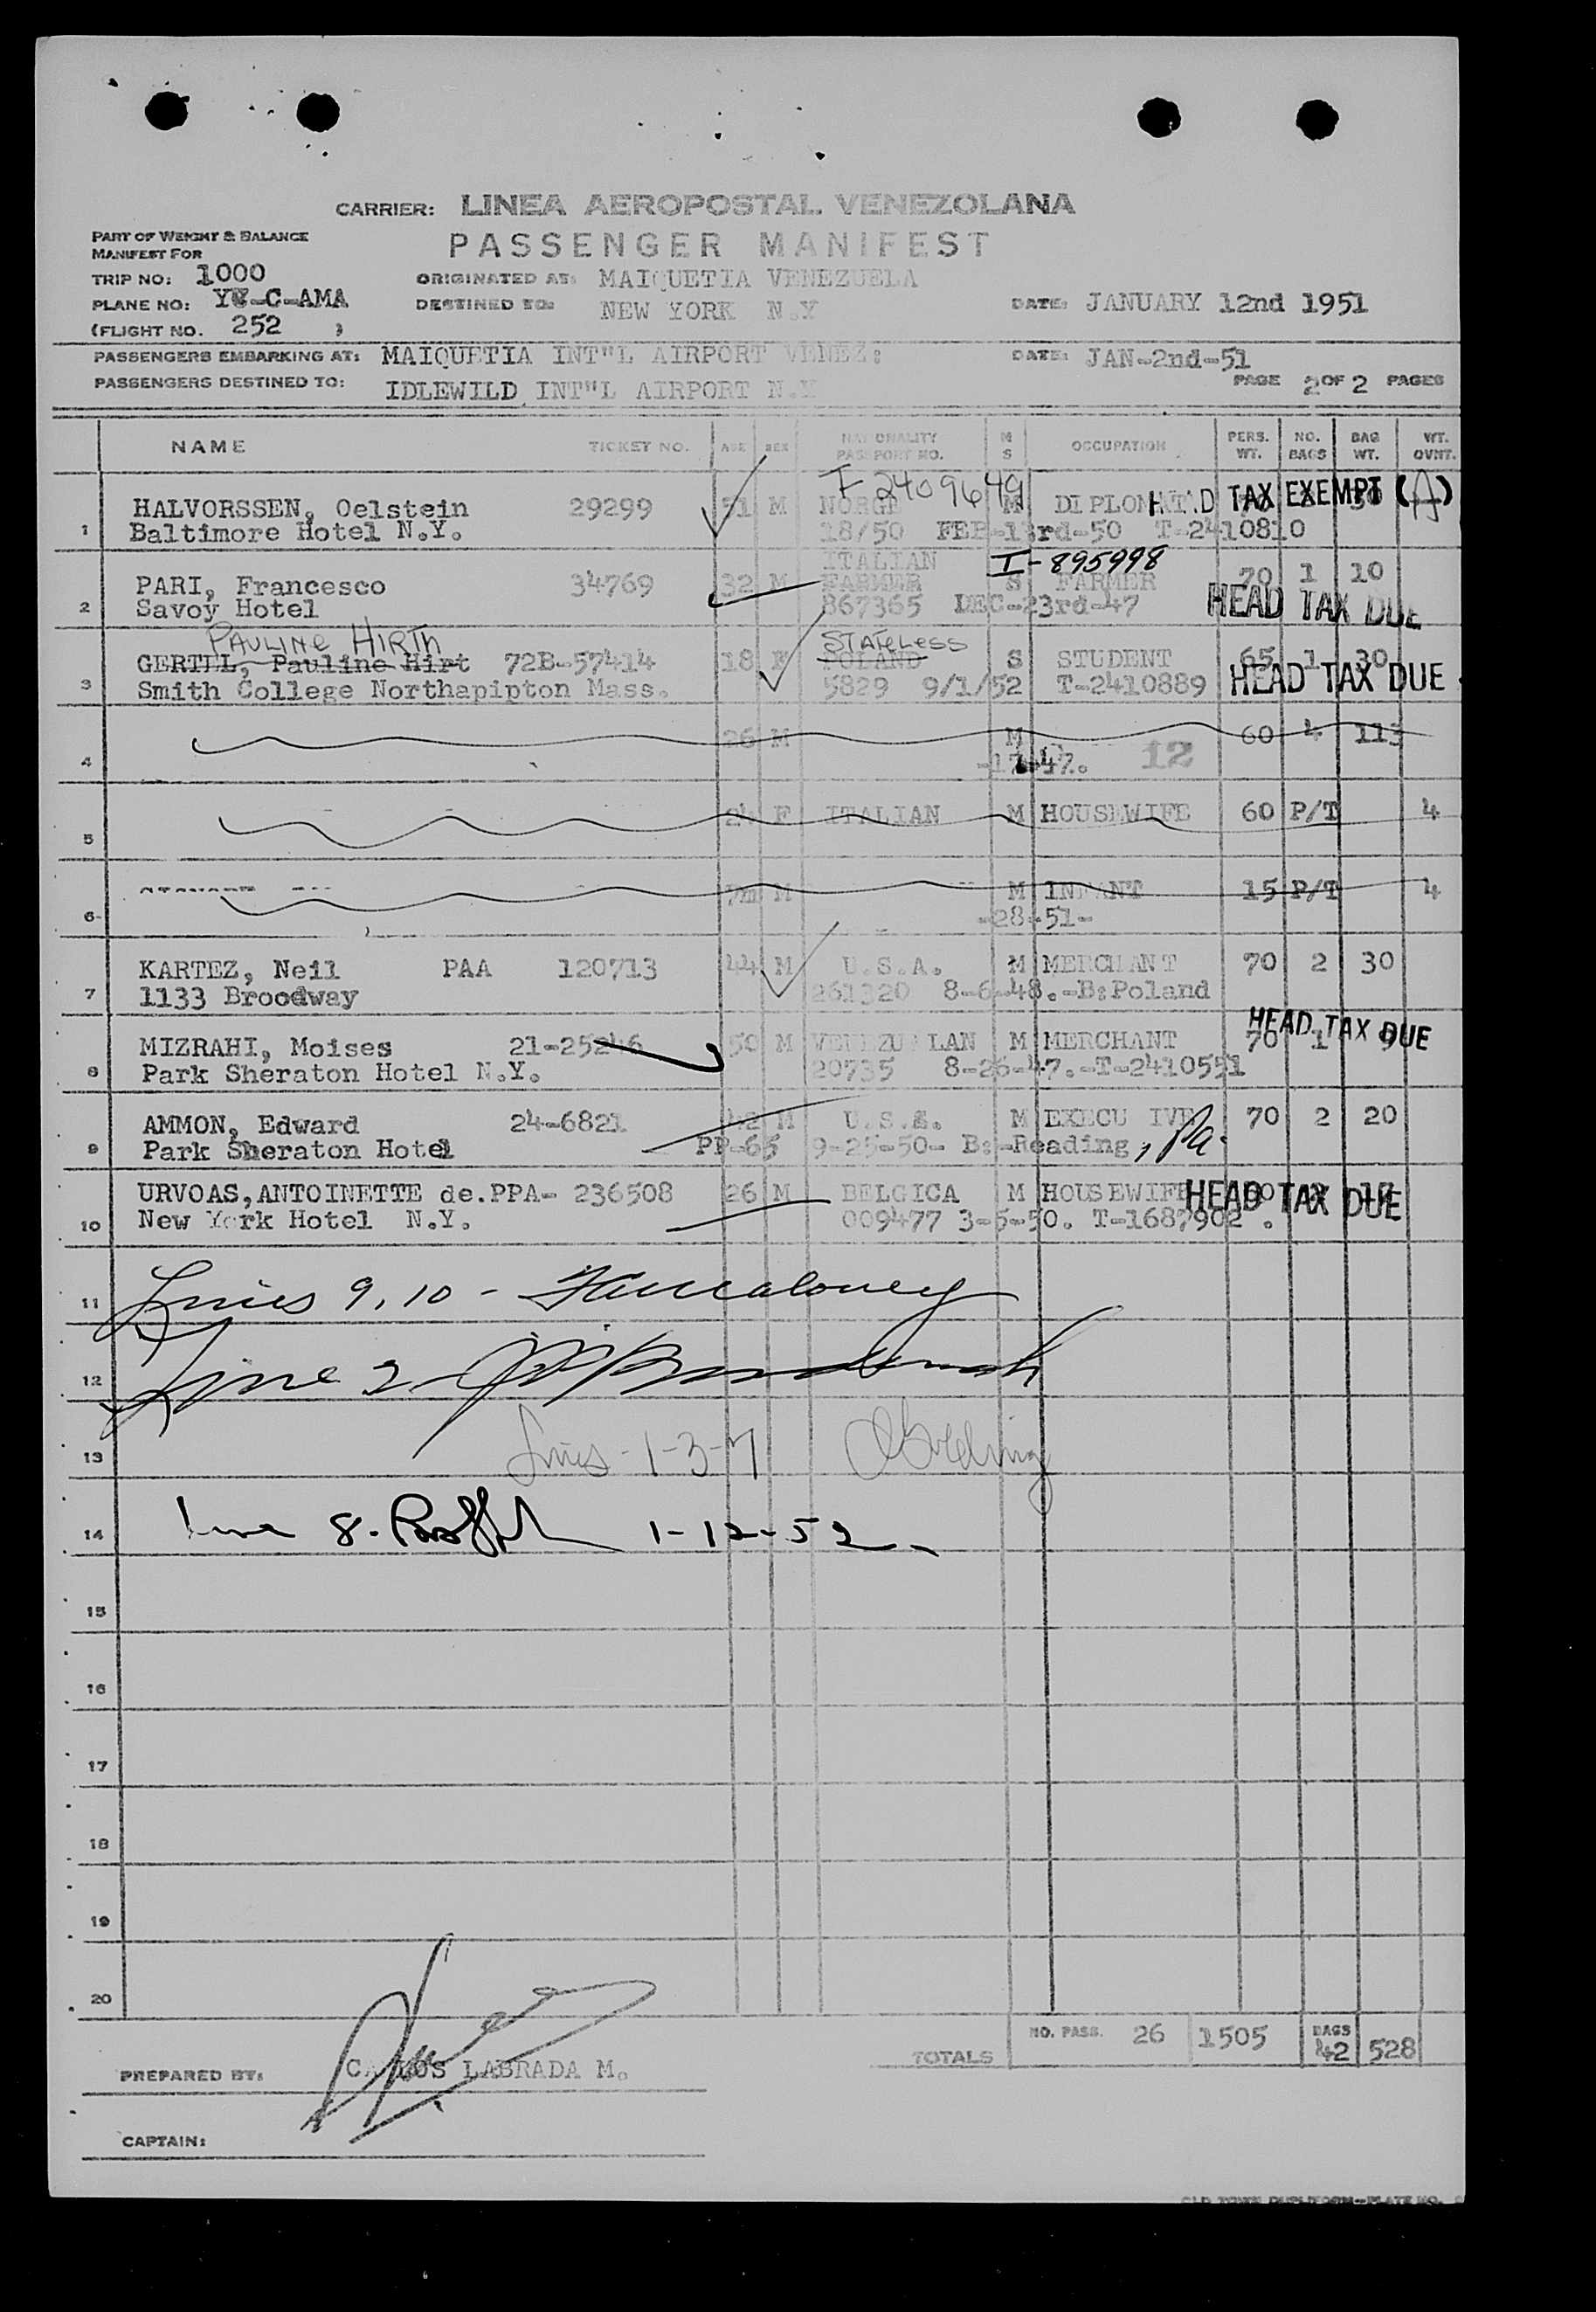 CARRIER: LINEA AEROPOSTAL VENEZOLANA
PART OF WEIGHT & BALANCE
MANIFEST FOR
PASSENGER MANIFEST
TRIP NO: 1000
ORIGINATED AT: MAIQUETIA VENEZUELA
PLANE NO: YV-C-AMA
DESTINED TO: NEW YORK N.Y
DATE: JANUARY 12nd 1951
(FLIGHT NO. 252 )
PASSENGERS EMBARKING AT: MAIQUETIA INT"L AIRPORT VENEZ:
DATE: JAN-2nd-51
PASSENGERS DESTINED TO: IDLEWILD INT"L AIRPORT N.Y
PAGE 2 OF 2 PAGES
NAME TICKET NO. AGE SEX NATIONALITY PASSPORT NO. M S OCCUPATION PERS. WT. NO. BAGS BAG WT. WT. OVNT.
I-2409649
1 HALVORSSEN, Oelstein 29299 51 M NORGE M DIPLOMAT HEAD TAX EXEMPT (A)
Baltimore Hotel N.Y. 18/50 FEB-13rd-50 T-2410810
ITALIAN I-895998
2 PARI, Francesco 34769 32 M FARMER S FARMER 70 1 10
Savoy Hotel 867365 DEC-23rd-47 HEAD TAX DUE
PAULINE HIRTH STATELESS
3 GERTEL, Pauline Hirt 72B-57414 18 F POLAND S STUDENT 65 1 30
Smith College Northapipton Mass. 5829 9/1/52 T-2410889 HEAD TAX DUE
4 26 M M 60 4 113
-17-47. 12
5 24 F ITALIAN M HOUSEWIFE 60 P/T 4
6 M M INFANT 15 P/T 4
-28-51-
7 KARTEZ, Neil PAA 120713 44 M U.S.A. M MERCHANT 70 2 30
1133 Broodway 261320 8-6-48.-B:Poland
HEAD TAX DUE
8 MIZRAHI, Moises 21-25246 50 M VENEZUELAN M MERCHANT 70 1
Park Sheraton Hotel N.Y. 20735 8-26-47.-T-2410551
9 AMMON, Edward 24-6821 42 M U.S.A. M EXECUTIVE 70 2 20
Park Sheraton Hotel PP-65 9-25-50- B:-Reading, Pa.
10 URVOAS, ANTOINETTE de.PPA- 236508 26 M BELGICA M HOUSEWIFE HEAD TAX DUE
New York Hotel N.Y. 009477 3-5-50. T-1687902 .
11 Lines 9, 10 -
12 Line 2
13 Lines - 1-3-7 Golding
14 Line 8. 1-12-52
15
16
17
18
19
20
TOTALS NO. PASS. 26 1505 BAGS 42 528
PREPARED BY: CARLOS LABRADA M.
CAPTAIN: